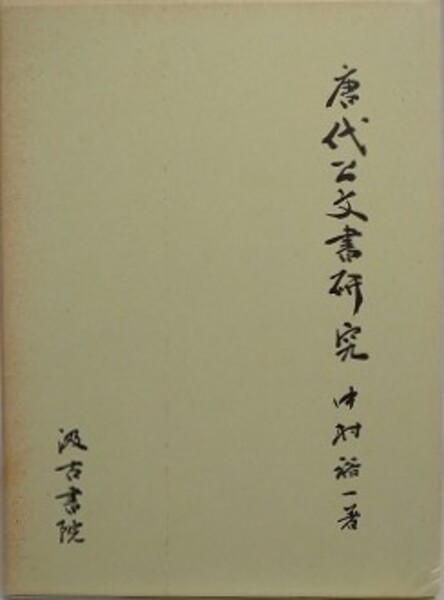 唐代公文書研究 中村裕一著
汲古書院